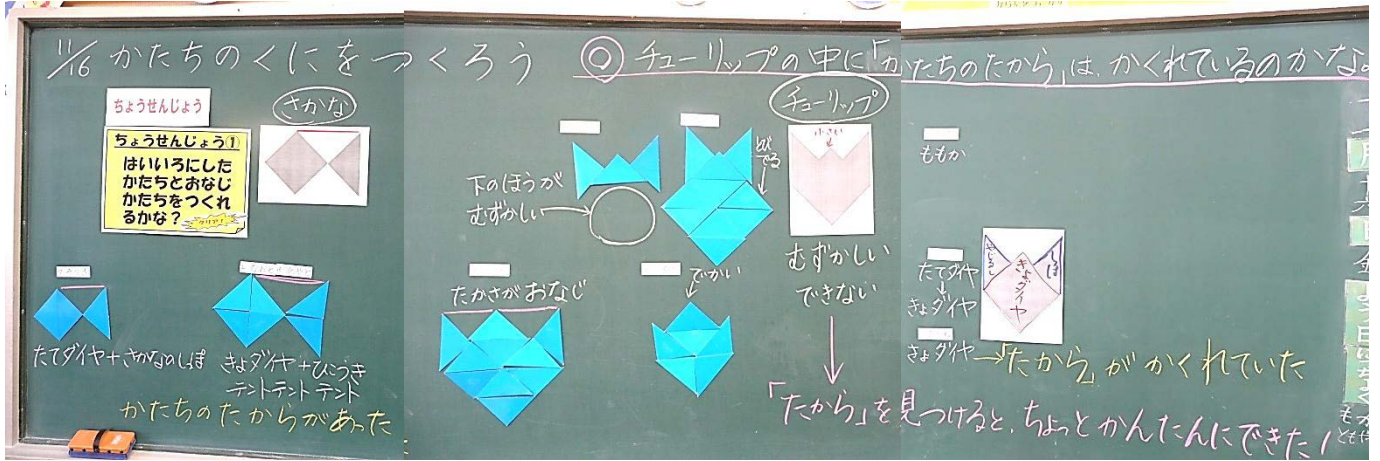 11/16 かたちのくにをつくろう
◎ チューリップの中に「かたちのたから」は、かくれているのかな。
ちょうせんじょう
さかな
ちょうせんじょう①
はいいろにした
かたちとおなじ
かたちをつくれ
るかな?
たてダイヤ+さかなのしっぽ
きょダイヤ+ひこうき
テントテントテント
かたちのたからがあった
チューリップ
小さい
とびでる
下のほうが
むずかしい
たかさがおなじ
でかい
むずかしい
できない
「たから」を見つけると、ちょっとかんたんにできた!
ももか
たてダイヤ
きょダイヤ
きょダイヤ
しっぽ
きょダイヤ→「たから」がかくれていた